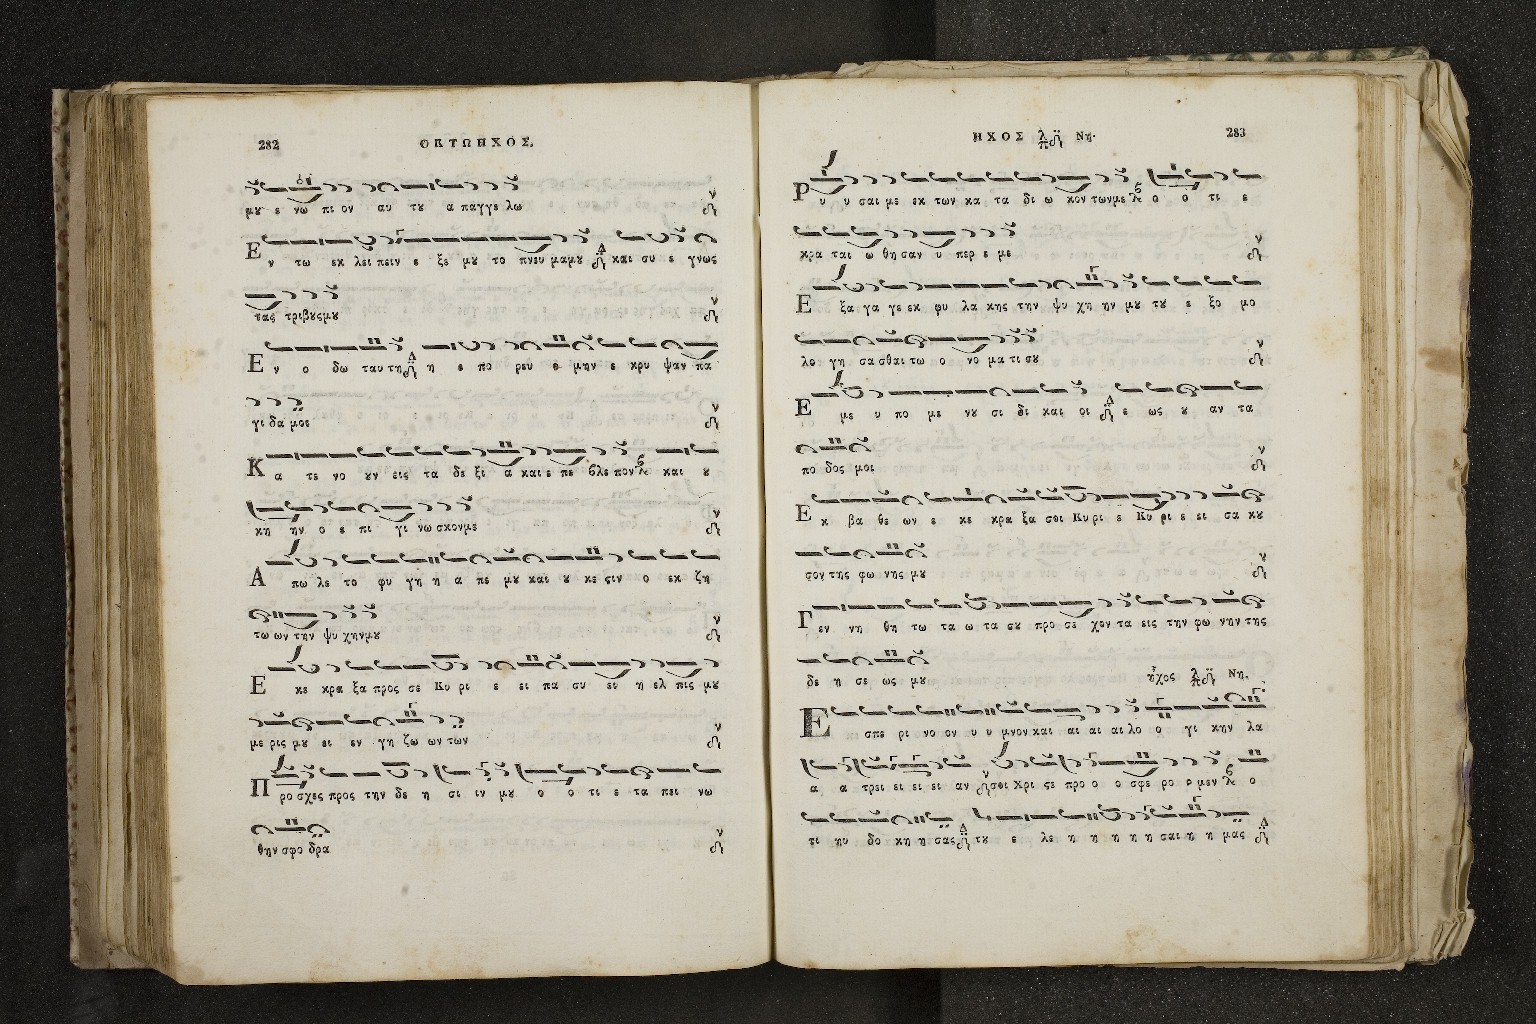 282
ΟΚΤΩΗΧΟΣ.
μȣ ε νω πι ον αυ τȣ α παγγε λω
Ε ν τω εκ λει πειν ε ξε μȣ το πνευ μαμȣ και συ ε γνως
τας τριβȣςμȣ
Ε ν ο δω ταυ τη η ε πο ρευ ο μην ε κρυ ψαν πα
γι δα μοι
Κ α τε νο ουν εις τα δε ξι α και ε πε βλε πον και ȣ
κη ην ο ε πι γι νω σκονμε
Α πω λε το φυ γη η α πε μȣ και ȣ κε ϛιν ο εκ ζη
τω ων την ψυ χηνμȣ
Ε κε κρα ξα προς σε Κυ ρι ε ει πα συ ει η ελ πις μȣ
με ρις μȣ ει εν γη ζω ων των
Π ρο σχες προς την δε η σι ιν μȣ ο ο τι ε τα πει νω
θην σφο δρα
ΗΧΟΣ Νη.
283
Ρ υ υ σαι με εκ των κα τα δι ω κον τωνμε ο ο τι ε
κρα ται ω θη σαν υ περ ε με
Ε ξα γα γε εκ φυ λα κης την ψυ χη ην μȣ τȣ ε ξο μο
λο γη σα σθαι τω ο νο μα τι σȣ
Ε με υ πο με νȣ σι δι και οι ε ως ȣ αν τα
πο δος μοι
Ε κ βα θε ων ε κε κρα ξα σοι Κυ ρι ε Κυ ρι ε ει σα κȣ
σον της φω νης μȣ
Γ εν νη θη τω τα ω τα σȣ προ σε χον τα εις την φω νην της
δε η σε ως μȣ ἦχος Νη.
Ε σπε ρι νο ον υ υ μνον και αι αι αι λο ο γι κην λα
α α τρει ει ει ει αν σοι Χρι ϛε προ ο ο σφε ρο ο μεν ο
τι ηυ δο κη η σας τȣ ε λε η η η η η σαι η η μας